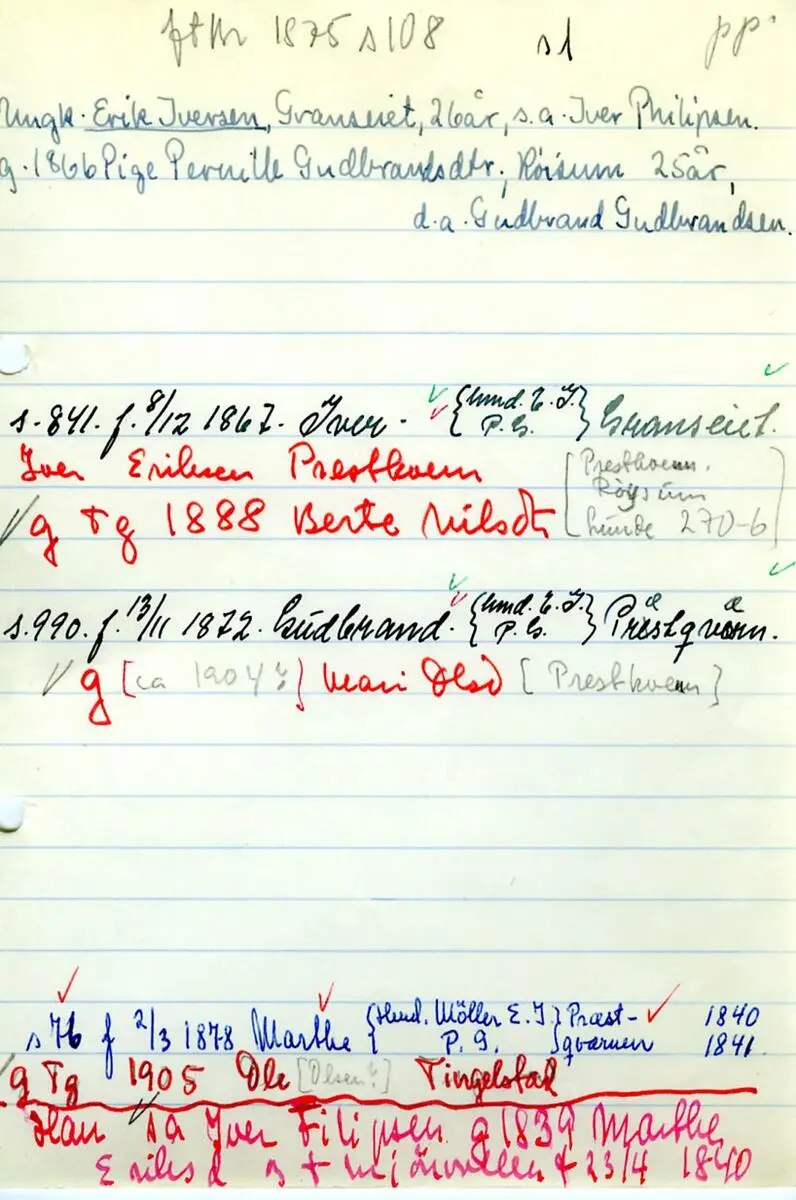 ftbr 1875 s108 s1 pp.
Ungk. Erik Iversen, Granseiet, 26år, s.a. Iver Philipsen.
g. 1866 Pige Pernille Gudbrandsdtr., Röisum 25år,
d.a. Gudbrand Gudbrandsen.
s. 841. f. 8/12 1867. Iver. {Hmd. E. I. P. G.} Granseiet.
Iver Eriksen Prestkvern [Prestkvern.
Röysum
g Tg 1888 Berte Nilsdtr hunde 270-6]
s. 990. f. 13/11 1872. Gudbrand. {Hmd. E. I. P. G.} Præstqværn.
g [ca 1904?] Mari Olsd [Prestkvern]
s 76 f 2/3 1878 Marthe {Hmd. Möller E. I. } Præst- 1840
P. G. qværnen 1841.
g Tg 1905 Ole [Olsen?] Tingelstad
Han sa Iver Filipsen g 1839 Marthe
Eriksd + 23/4 1840